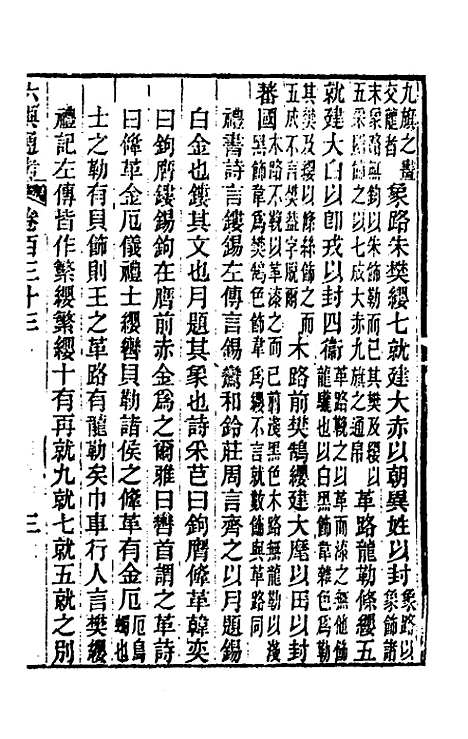 九旗之畫交龍者象路朱樊纓七就建大赤以朝異姓以封象路以象飾諸
末象路無鉤以朱飾勒而已其樊及纓以五采罽飾之以七成大赤九旗之通帛革路龍勒條纓五
就建大白以卽戎以封四衞革路鞔之以革而漆之無他飾龍駹也以白黑飾韋雜色爲勒
其樊及纓以絛絲飾之而五成不言樊蓋字原爾木路前樊鵠纓建大麾以田以封
蕃國木路不鞔以革漆之而已前淺黑也木路無龍勒以淺黑飾韋爲樊鵠色飾韋爲纓不言就數飾與革路同
禮書詩言鏤鍚左傳言鍚鸞和鈴莊周言齊之以月題鍚
白金也鏤其文也月題其象也詩采芑曰鉤膺鞗革韓奕
曰鉤膺鏤鍚鉤在膺前赤金爲之爾雅曰轡首謂之革詩
曰鞗革金厄儀禮士纓轡貝勒諸侯之鞗革有金厄厄烏蠋也
士之勒有貝飾則王之革路有龍勒矣巾車行人言樊纓
禮記左傳皆作繁纓繁纓十有再就九就七就五就之別
六典通考 卷百三十三 三